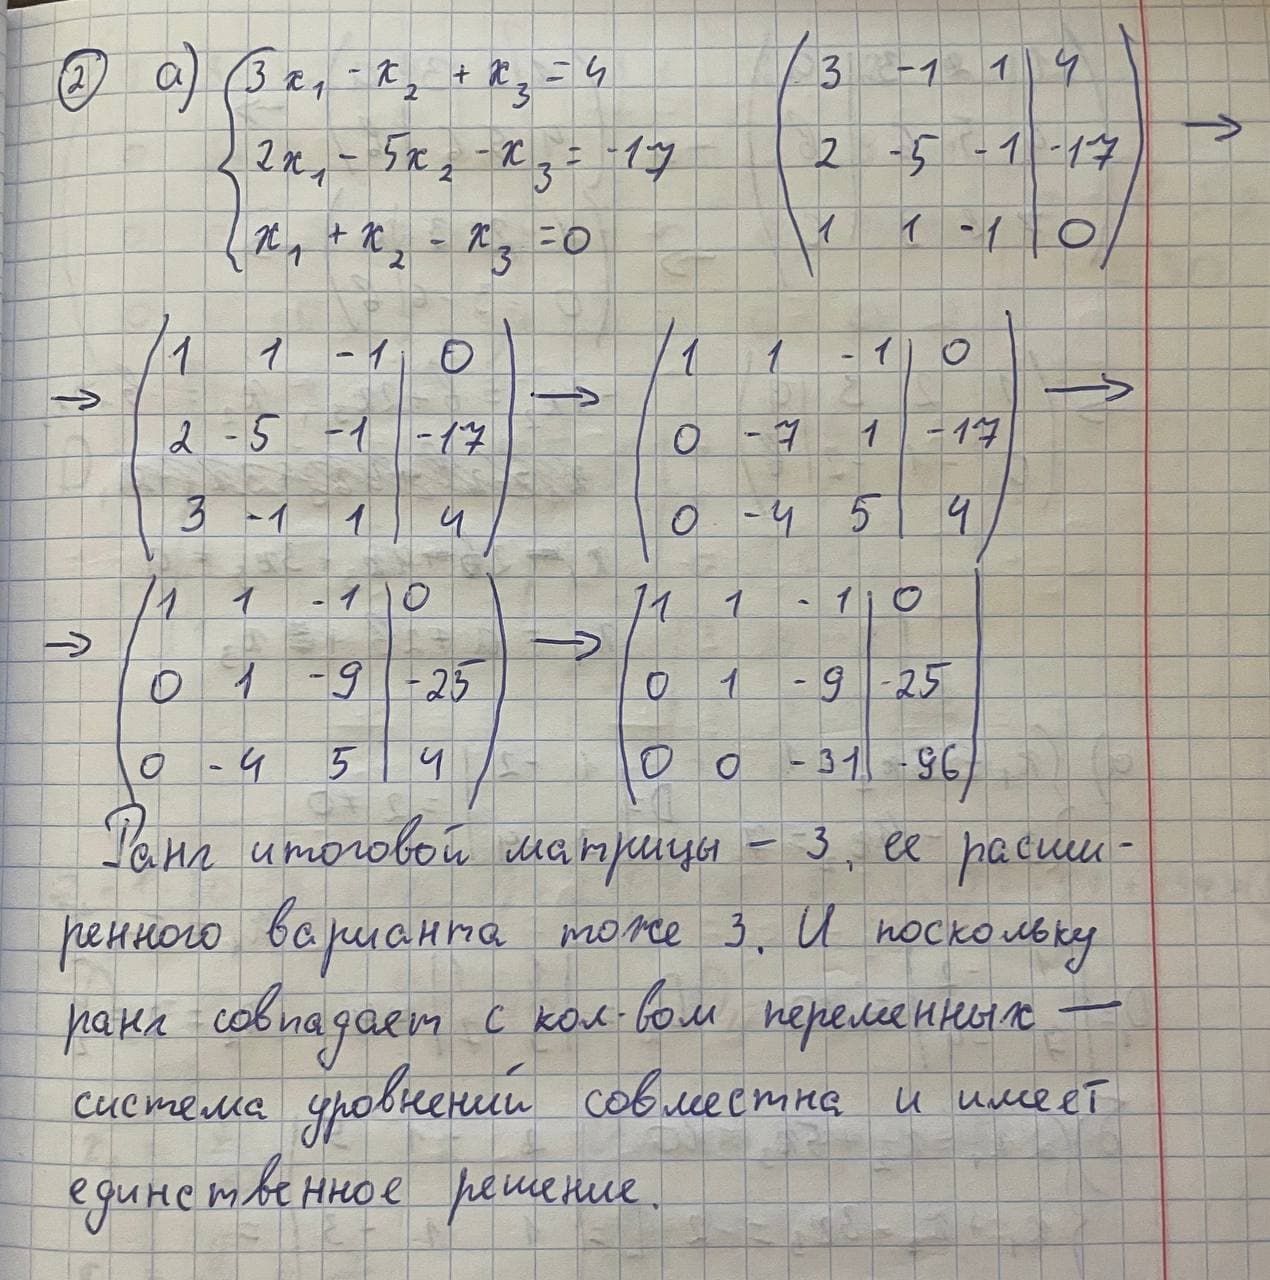 ② а) { 3x₁ - x₂ + x₃ = 4 ( 3 -1 1 | 4 )
2x₁ - 5x₂ - x₃ = -17 ( 2 -5 -1 | -17 ) →
x₁ + x₂ - x₃ = 0 ( 1 1 -1 | 0 )
( 1 1 -1 | 0 ) ( 1 1 -1 | 0 )
→ ( 2 -5 -1 | -17 ) → ( 0 -7 1 | -17 ) →
( 3 -1 1 | 4 ) ( 0 -4 5 | 4 )
( 1 1 -1 | 0 ) ( 1 1 -1 | 0 )
→ ( 0 1 -9 | -25 ) → ( 0 1 -9 | -25 )
( 0 -4 5 | 4 ) ( 0 0 -31 | -96 )
Ранг итоговой матрицы - 3, ее расши-
ренного варианта тоже 3. И поскольку
ранг совпадает с кол-вом переменных —
система уровнений совместна и имеет
единственное решение.